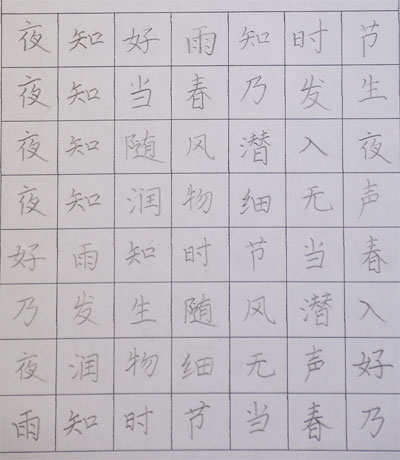 夜知好雨知时节
夜知当春乃发生
夜知随风潜入夜
夜知润物细无声
好雨知时节当春
乃发生随风潜入
夜润物细无声好
雨知时节当春乃